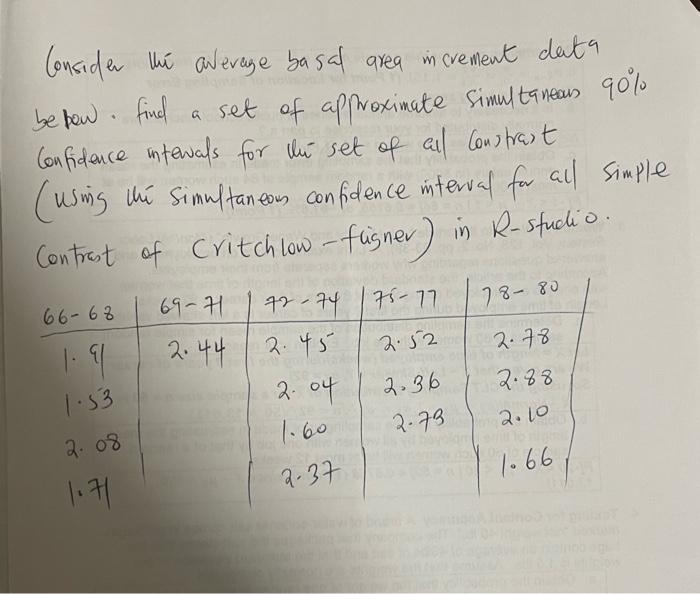 Consider the average basal area increment data
below. find a set of approximate simultaneous 90%
Confidence intervals for the set of all Constrast
(using the simultaneous confidence interval for all simple
Contrast of Critchlow - fligner) in R-studio.
66-68 69-71 72-74 75-77 78-80
1.91 2.44 2.45 2.52 2.78
1.53 2.04 2.36 2.88
2.08 1.60 2.73 2.10
1.71 2.37 1.66